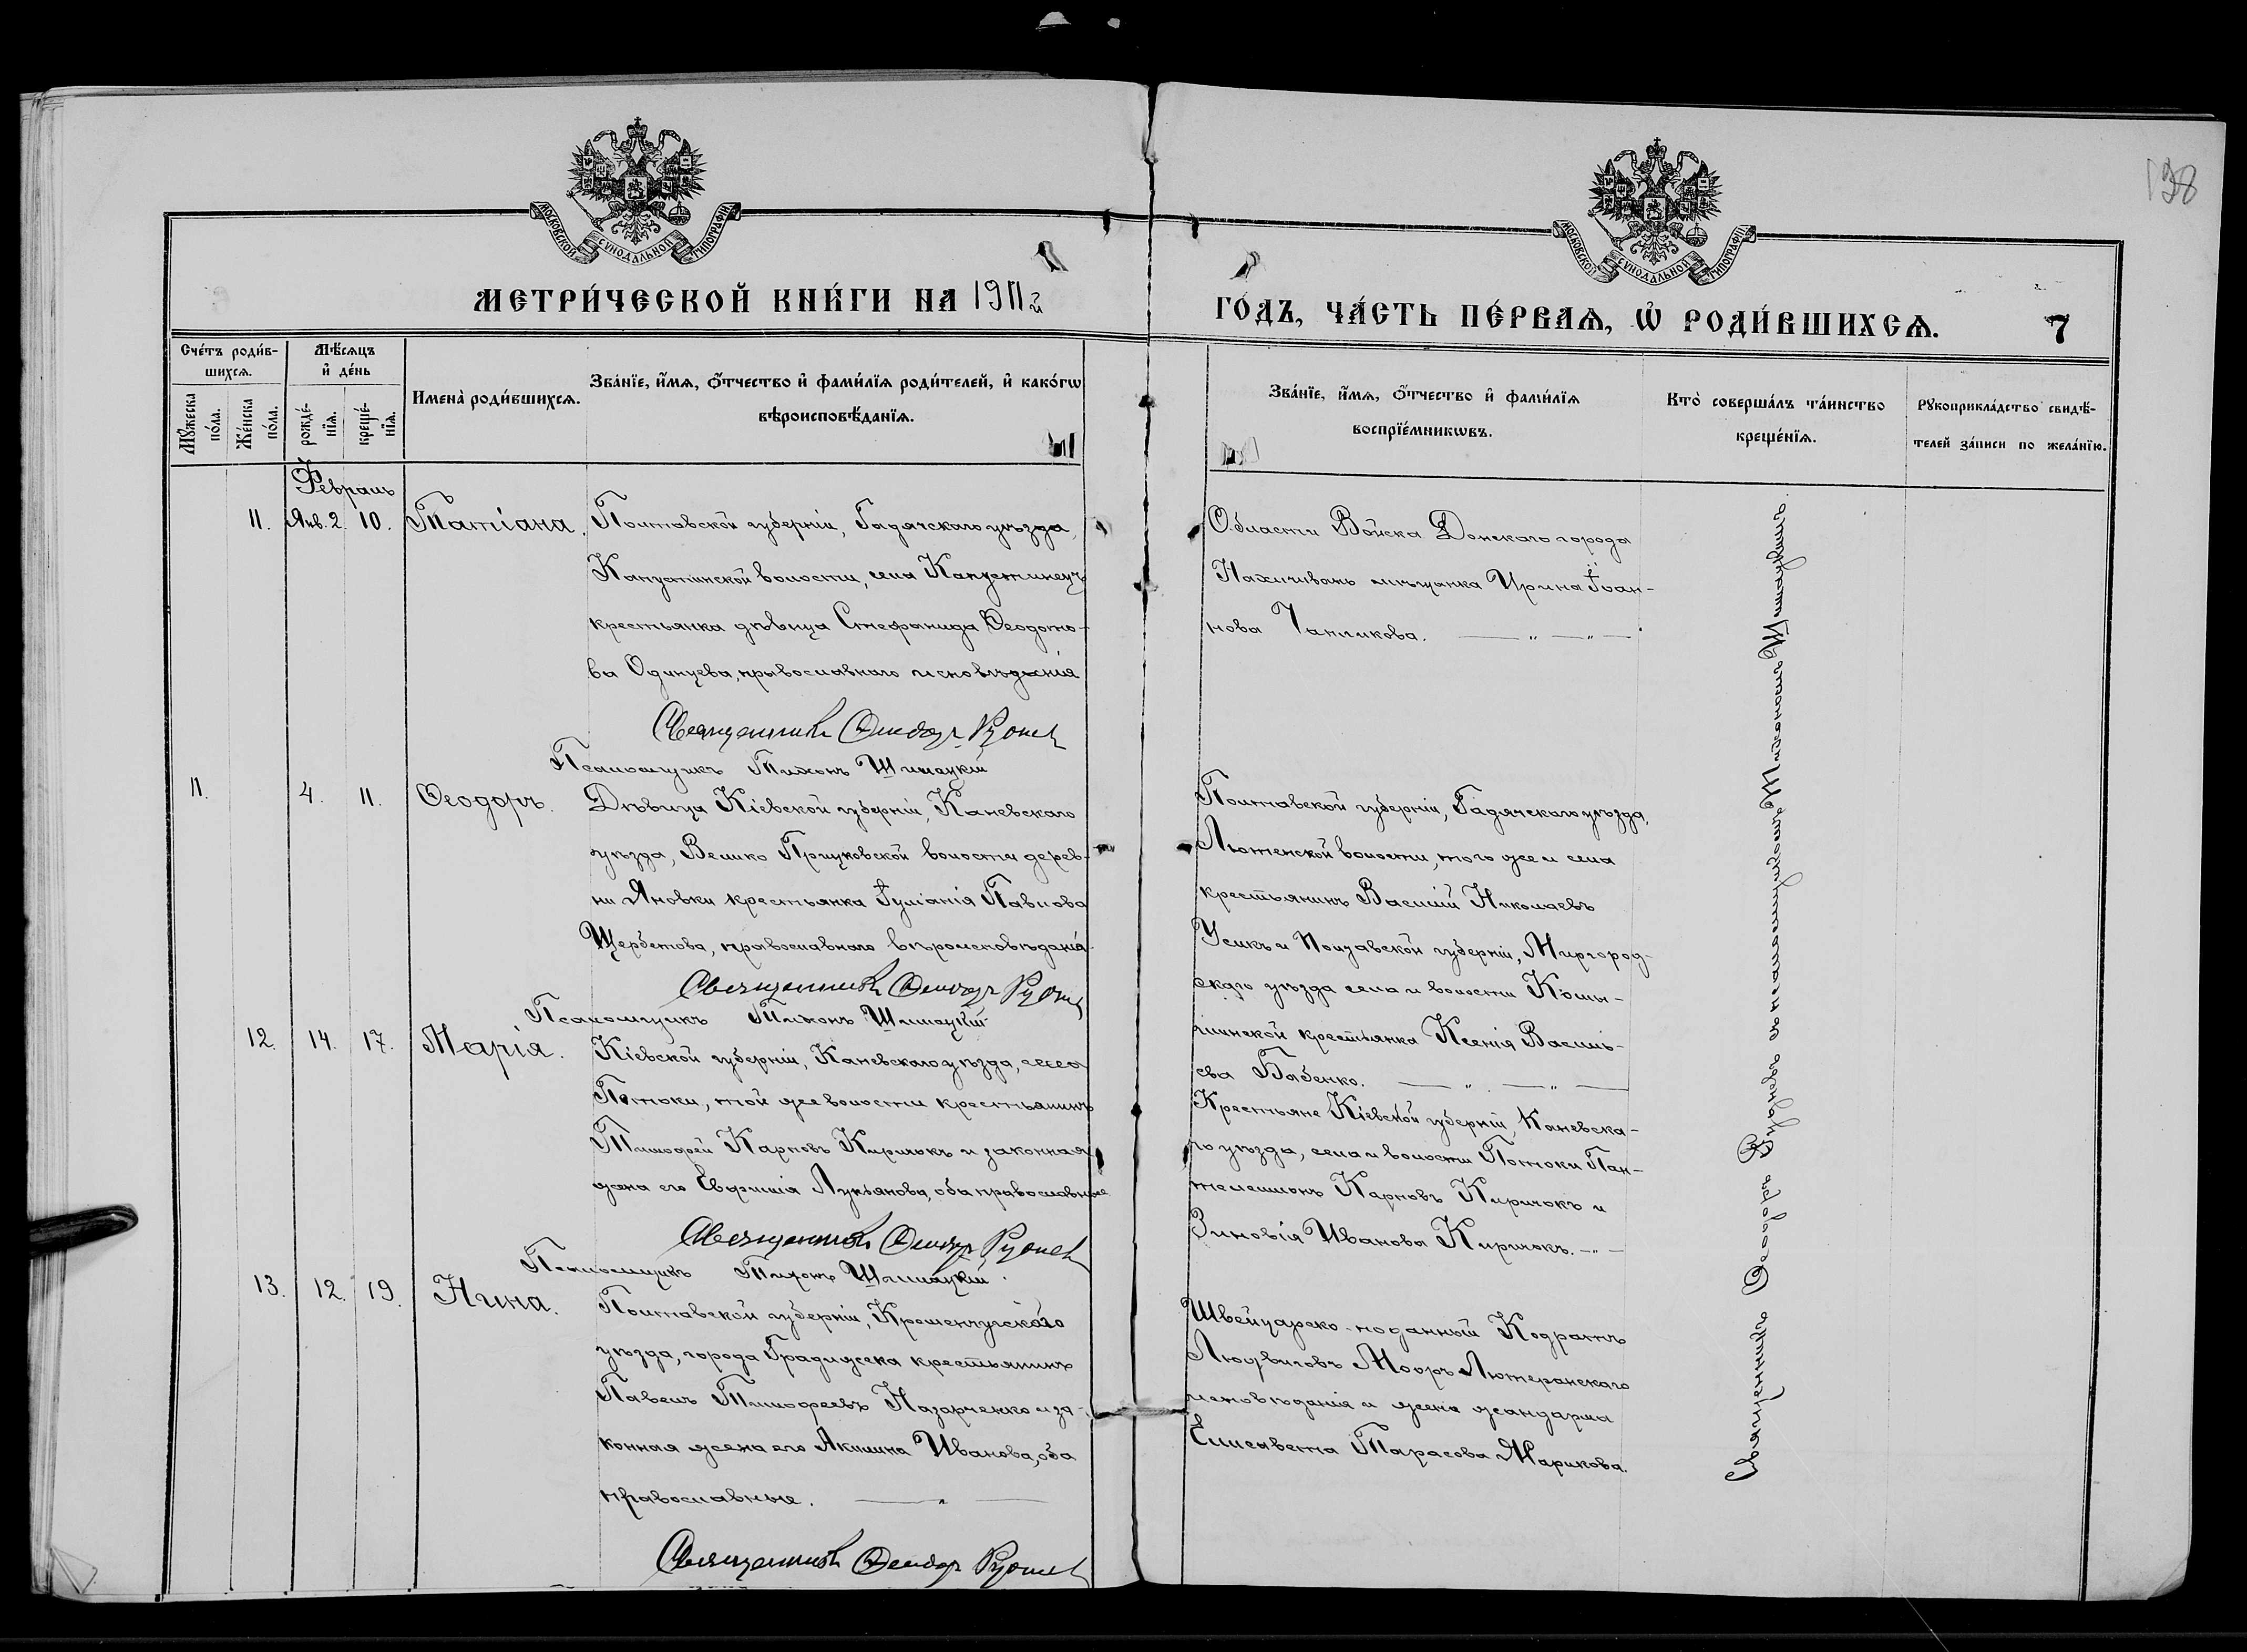 138
МОСКОВСКОЙ СѴНОДАЛЬНОЙ ТИПОГРАФІИ
МОСКОВСКОЙ СѴНОДАЛЬНОЙ ТИПОГРАФІИ
МЕТРИ́ЧЕСКОЙ КНИ́ГИ НА 1911й
ГО́ДЪ, ЧА́СТЬ ПЕ́РВАѦ, Ѡ РОДИ́ВШИХСѦ.
7
Сче́тъ роди́в-
шихсѧ.
Мѣ́сѧцъ
и҆ де́нь
Мꙋ́жеска
по́ла.
Же́нска
по́ла.
рожде́-
нїѧ.
креще́-
нїѧ.
Имена̀ роди́вшихсѧ.
Зва́нїе, и҆́мѧ, ѻ҆́тчество и҆ фами́лїѧ роди́телей, и҆ како́гѡ
вѣроисповѣ́данїѧ.
Зва́нїе, и҆́мѧ, ѻ҆́тчество и҆ фами́лїѧ
воспрїе́мникѡвъ.
Кто̀ соверша́лъ та́инство
креще́нїѧ.
Рꙋкоприкла́дство свидѣ́-
телей за́писи по жела́нїю.
Февраль
11. Янв. 2. 10. Татіана.
Полтавской губерніи, Гадячскаго уѣзда,
Капустинской волости, села Капустинецъ
крестьянка дѣвица Стефанида Ѳеодото-
ва Одинцева, православнаго исповѣданія
Священникъ Ѳеодоръ Руднев
Псаломщикъ Тихонъ Шимацкій
Области Войска Донскаго города
Нахичивань мѣщанка Ирина Іоан-
нова Чапликова.
11. 4. 11. Ѳеодоръ.
Дѣвица Кіевской губерніи, Каневскаго
уѣзда, Велико Прицковской волости дерев-
ни Яновки крестьянка Іуліанія Павлова
Щербетова, православнаго вѣроисповѣданія.
Священникъ Ѳеодоръ Руднев
Псаломщикъ Тихонъ Шимацкій
Полтавской губерніи, Гадячскаго уѣзда,
Лютенской волости, того же и села
крестьянинъ Василій Николаевъ
Усикъ и Полтавской губерніи, Миргород-
скаго уѣзда села и волости
крестьянка Ксенія Василь-
ева Бабенко.
12. 14. 17. Марія.
Кіевской губерніи, Каневскаго уѣзда, села
Потоки, той же волости крестьянинъ
Тимофей Карповъ Киричокъ и законная
жена его Евфимія Лукьянова, оба православные
Священникъ Ѳеодоръ Руднев
Псаломщикъ Тихонъ Шимацкій.
Крестьяне Кіевской губерніи, Каневска-
го уѣзда, села и волости Потоки Пан-
телеимонъ Карповъ Киричокъ и
Зиновія Иванова Киричокъ.
13. 12. 19. Нина.
Полтавской губерніи, Кременчугскаго
уѣзда, города Градижска крестьянинъ
Павелъ Тимофеевъ Назарченко и за-
конная жена его Акилина Иванова, оба
православные.
Священникъ Ѳеодоръ Руднев
Швейцарско-поданный Кодратъ
Людвиговъ Мооръ Лютеранскаго
исповѣданія и жена жандарма
Елисавета Тарасова Марикова.
Священникъ Ѳеодоръ Рудневъ съ псаломщикомъ Тихономъ Шимацкимъ